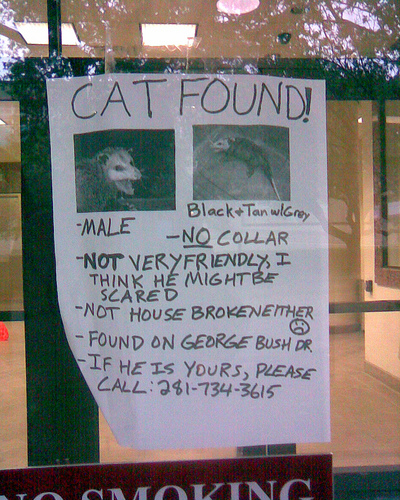 CAT FOUND!
Black + Tan w/ Grey
-MALE
-NO COLLAR
-NOT VERY FRIENDLY, I
THINK HE MIGHT BE
SCARED
-NOT HOUSE BROKEN EITHER
- FOUND ON GEORGE BUSH DR
-IF HE IS YOURS, PLEASE
CALL: 281-734-3615
NO SMOKING